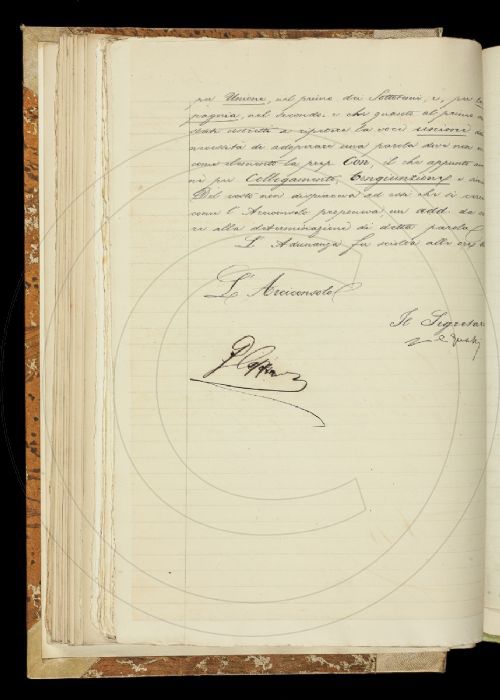 per Unione, nel primo dei Sottotemi, e, per
pagnia, nel secondo: e che quanto al primo
state costretto a ripetere la voce unione
necessità di adoperare una parola dove non
come elemento la prep. Con, il che appunto
ne per Collegamento, Congiunzione e
Del resto non dispiaceva ad essi che si
come l'Arciconsolo proponeva un add.
re alla determinazione di detta parola.
L'Adunanza fu sciolta alle ore
L'Arciconsolo
Il Segretar